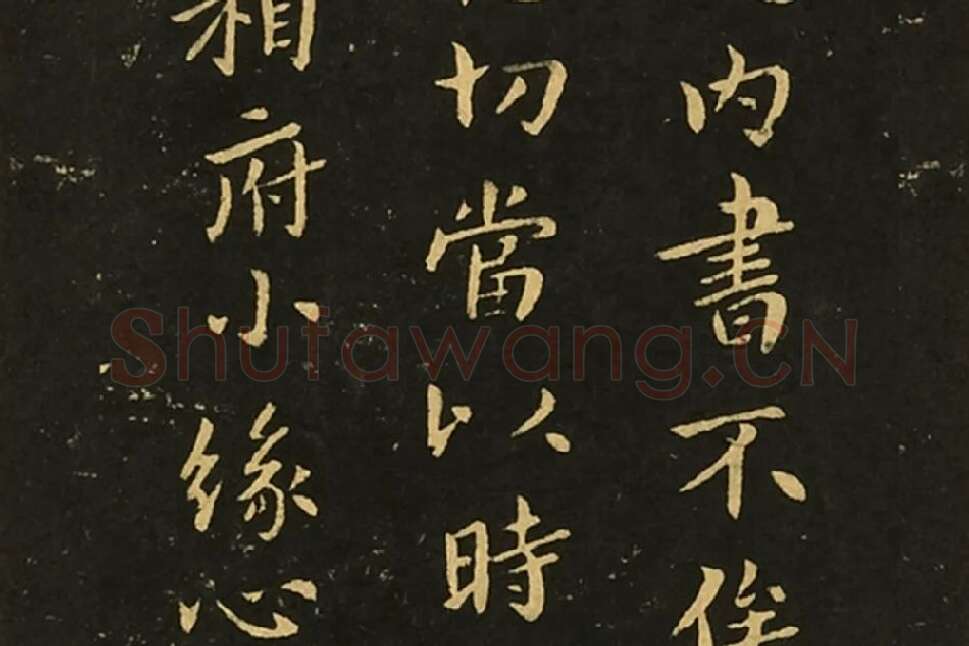 内書不俟
切當以時
箱府小緣心
Shufawang.CN